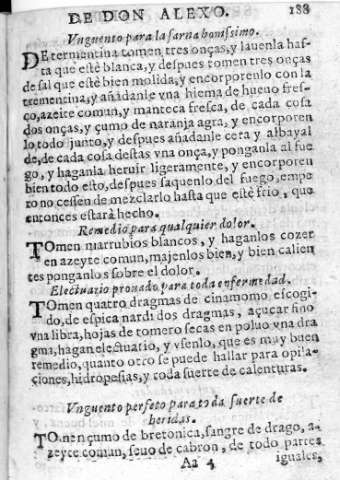 DE DON ALEXO. 188
Vnguento para la sarna bonissimo.
DE termentina tomen tres onças, y lauenla has-
ta que estè blanca, y despues tomen tres onças
de sal que estè bien molida, y encorporenlo con la
trementina, y añadanle vna hiema de hueuo fres-
co, azeite comun, y manteca fresca, de cada cosa
dos onças, y çumo de naranja agra, y encorporen
lo todo junto, y despues añadanle cera y albayal
de, de cada cosa destas vna onça, y ponganla al fue
go, y haganla heruir ligeramente, y encorporen
bien todo esto, despues saquenlo del fuego, empe
ro no cessen de mezclarlo hasta que estè frio, que
entonces estarà hecho.
Remedio para qualquier dolor.
TOmen marrubios blancos, y haganlos cozer
en azeyte comun, majenlos bien, y bien calien
tes ponganlos sobre el dolor.
Electuario prouado para toda enfermedad.
TOmen quatro dragmas de cinamomo escogi-
do, de espica nardi dos dragmas, açucar fino
vna libra, hojas de romero secas en poluo vna dra
gma, hagan electuario, y vsenlo, que es muy buen
remedio, quanto otro se puede hallar para opila-
çiones, hidropesias, y toda suerte de calenturas.
Vnguento perfeto para toda suerte de
heridas.
TOmen çumo de bretonica, sangre de drago, a-
zeyte comun, seuo de cabron, de todo partes
Aa 4 iguales,